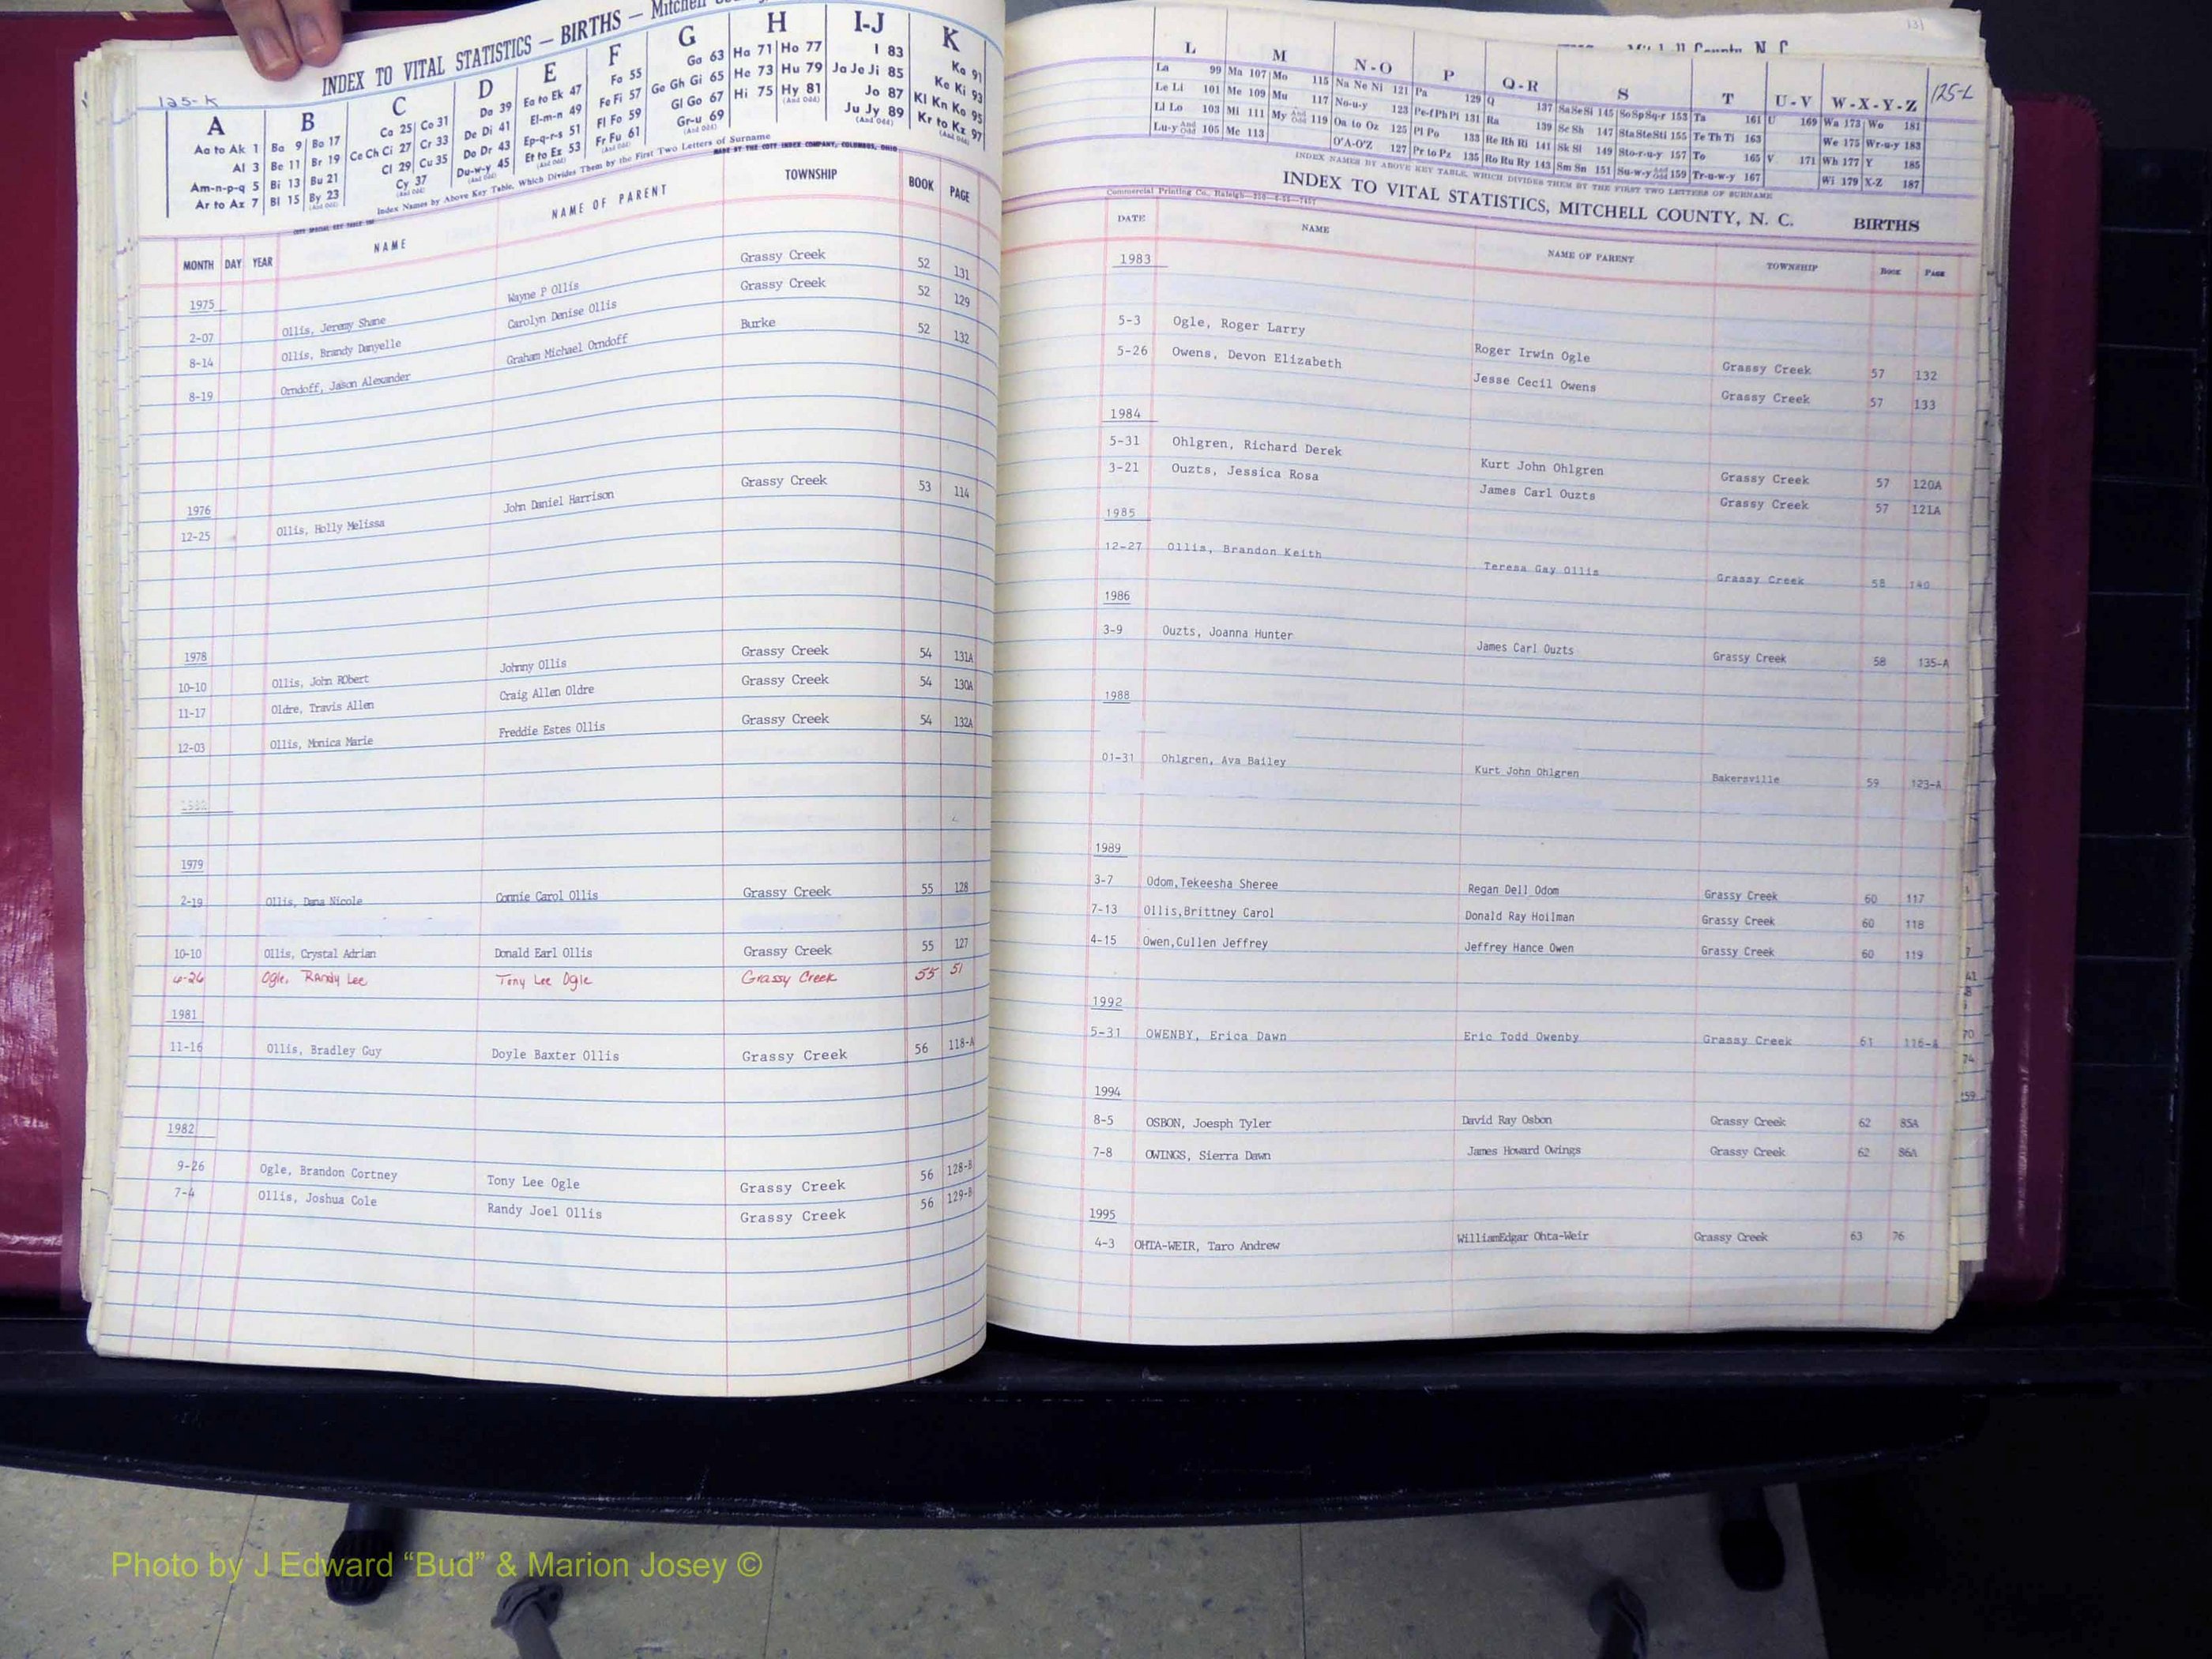 INDEX TO VITAL STATISTICS — BIRTHS — Mitchell
125-K
A B C D E F G H I-J K
Aa to Ak 1
Al 3
Am-n-p-q 5
Ar to Az 7
Ba 9 Bo 17
Be 11 Br 19
Bi 13 Bu 21
Bl 15 By 23
(And Odd)
Ca 25 Co 31
Ce Ch Ci 27 Cr 33
Cl 29 Cu 35
Cy 37
(And Odd)
Da 39
De Di 41
Do Dr 43
Du-w-y 45
(And Odd)
Ea to Ek 47
El-m-n 49
Ep-q-r-s 51
Et to Ez 53
(And Odd)
Fa 55
Fe Fi 57
Fl Fo 59
Fr Fu 61
(And Odd)
Ga 63
Ge Gh Gi 65
Gl Go 67
Gr-u 69
(And Odd)
Ha 71 Ho 77
He 73 Hu 79
Hi 75 Hy 81
(And Odd)
I 83
Ja Je Ji 85
Jo 87
Ju Jy 89
(And Odd)
Ka 91
Ke Ki 93
Kl Kn Ko 95
Kr to Kz 97
(And Odd)
Index Names by Above Key Table, Which Divides Them by the First Two Letters of Surname
MADE BY THE COTT INDEX COMPANY, COLUMBUS, OHIO
MONTH DAY YEAR NAME NAME OF PARENT TOWNSHIP BOOK PAGE
1975
2-07 Ollis, Jeremy Shane Wayne P Ollis Grassy Creek 52 131
8-14 Ollis, Brandy Danyelle Carolyn Denise Ollis Grassy Creek 52 129
8-19 Orndoff, Jason Alexander Graham Michael Orndoff Burke 52 132
1976
12-25 Ollis, Holly Melissa John Daniel Harrison Grassy Creek 53 114
1978
10-10 Ollis, John RObert Johnny Ollis Grassy Creek 54 131A
11-17 Oldre, Travis Allen Craig Allen Oldre Grassy Creek 54 130A
12-03 Ollis, Monica Marie Freddie Estes Ollis Grassy Creek 54 132A
1979
2-19 Ollis, Dana Nicole Connie Carol Ollis Grassy Creek 55 128
10-10 Ollis, Crystal Adrian Donald Earl Ollis Grassy Creek 55 127
6-26 Ogle, Randy Lee Tony Lee Ogle Grassy Creek 55 51
1981
11-16 Ollis, Bradley Guy Doyle Baxter Ollis Grassy Creek 56 118-A
1982
9-26 Ogle, Brandon Cortney Tony Lee Ogle Grassy Creek 56 128-B
7-4 Ollis, Joshua Cole Randy Joel Ollis Grassy Creek 56 129-B
131
Mitchell County, N. C.
125-L
L M N-O P Q-R S T U-V W-X-Y-Z
La 99 Ma 107 Mo 115 Na Ne Ni 121 Pa 129 Q 137 Sa Se Si 145 So Sp Sq-r 153 Ta 161 U 169 Wa 173 Wo 181
Le Li 101 Me 109 Mu 117 No-u-y 123 Pe-f Ph Pi 131 Ra 139 Sc Sh 147 Sta Ste Sti 155 Te Th Ti 163 We 175 Wr-u-y 183
Ll Lo 103 Mi 111 My And Odd 119 Oa to Oz 125 Pl Po 133 Re Rh Ri 141 Sk Sl 149 Sto-r-u-y 157 To 165 V 171 Wh 177 Y 185
Lu-y And Odd 105 Mc 113 O'A-O'Z 127 Pr to Pz 135 Ro Ru Ry 143 Sm Sn 151 Su-w-y And Odd 159 Tr-u-w-y 167 Wi 179 X-Z 187
INDEX NAMES BY ABOVE KEY TABLE, WHICH DIVIDES THEM BY THE FIRST TWO LETTERS OF SURNAME
Commercial Printing Co., Raleigh
INDEX TO VITAL STATISTICS, MITCHELL COUNTY, N. C. BIRTHS
DATE NAME NAME OF PARENT TOWNSHIP BOOK PAGE
1983
5-3 Ogle, Roger Larry Roger Irwin Ogle Grassy Creek 57 132
5-26 Owens, Devon Elizabeth Jesse Cecil Owens Grassy Creek 57 133
1984
5-31 Ohlgren, Richard Derek Kurt John Ohlgren Grassy Creek 57 120A
3-21 Ouzts, Jessica Rosa James Carl Ouzts Grassy Creek 57 121A
1985
12-27 Ollis, Brandon Keith Teresa Gay Ollis Grassy Creek 58 140
1986
3-9 Ouzts, Joanna Hunter James Carl Ouzts Grassy Creek 58 135-A
1988
01-31 Ohlgren, Ava Bailey Kurt John Ohlgren Bakersville 59 123-A
1989
3-7 Odom,Tekeesha Sheree Regan Dell Odom Grassy Creek 60 117
7-13 Ollis,Brittney Carol Donald Ray Hoilman Grassy Creek 60 118
4-15 Owen,Cullen Jeffrey Jeffrey Hance Owen Grassy Creek 60 119
1992
5-31 OWENBY, Erica Dawn Eric Todd Owenby Grassy Creek 61 116-A
1994
8-5 OSBON, Joesph Tyler David Ray Osbon Grassy Creek 62 85A
7-8 OWINGS, Sierra Dawn James Howard Owings Grassy Creek 62 86A
1995
4-3 OHTA-WEIR, Taro Andrew WilliamEdgar Ohta-Weir Grassy Creek 63 76
Photo by J Edward “Bud” & Marion Josey ©